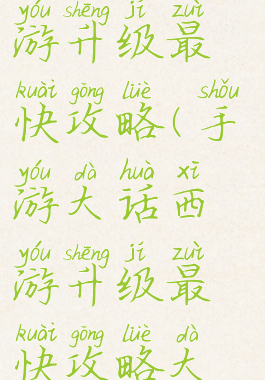 yóu shēng jí zuì
游升级最
kuài gōng lüè shǒu
快攻略(手
yóu dà huà xī
游大话西
yóu shēng jí zuì
游升级最
kuài gōng lüè dà
快攻略大